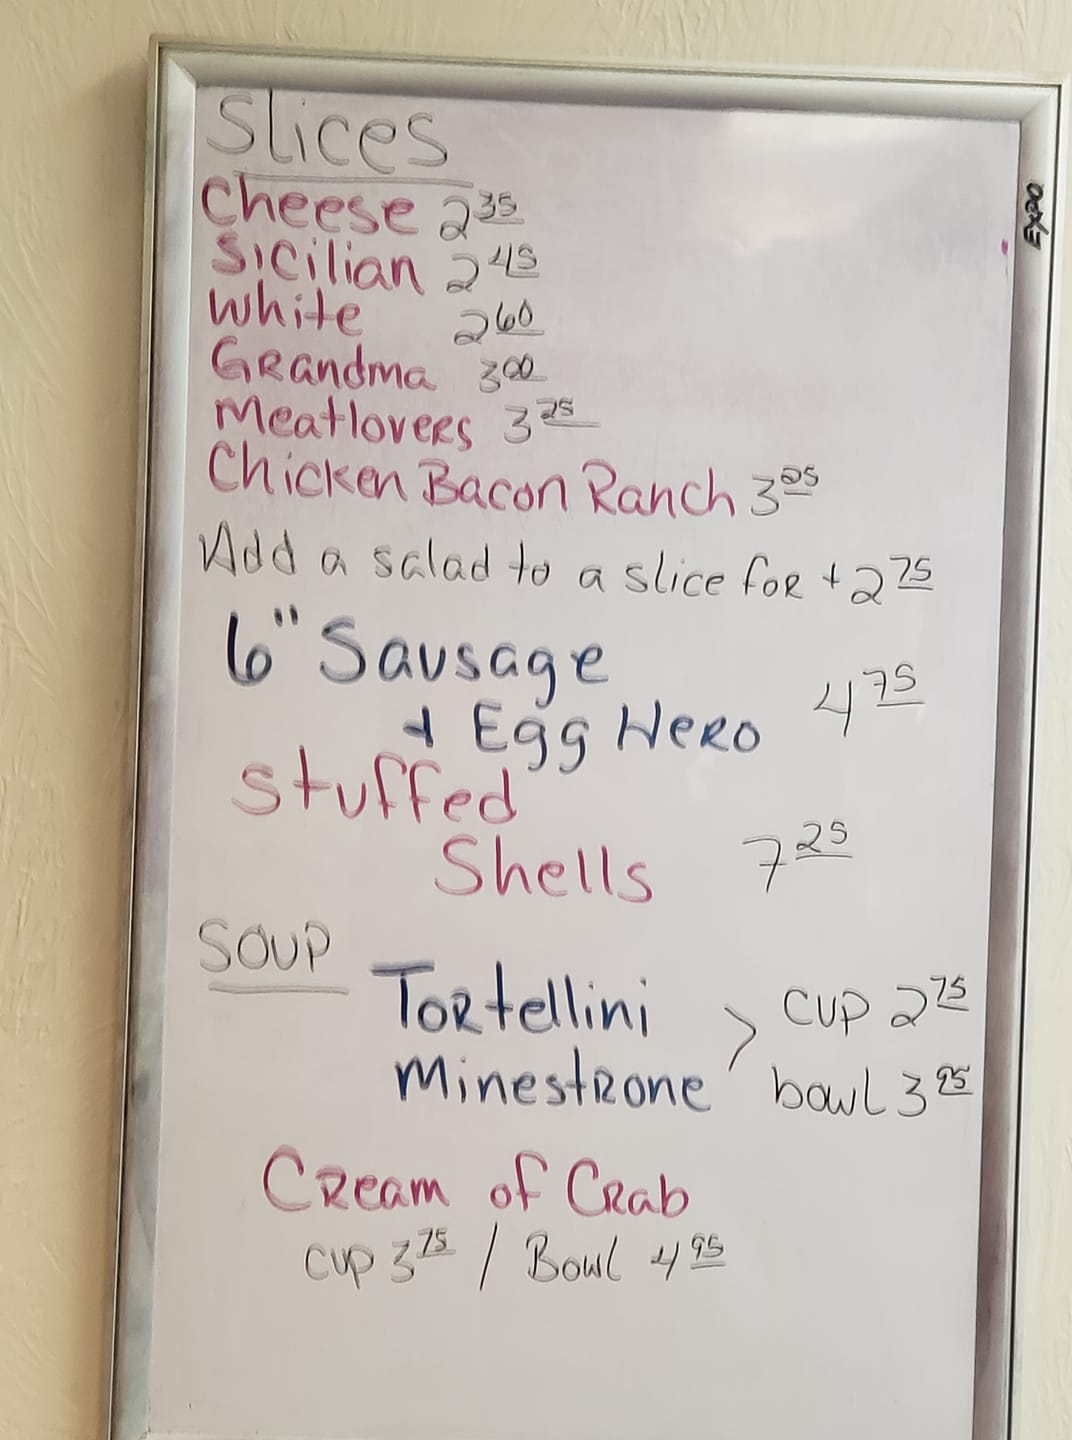 Slices
Cheese 2 35
Sicilian 2 45
White 2 60
Grandma 3 00
Meatlovers 3 25
Chicken Bacon Ranch 3
Add a salad to a slice for + 2 75
6" Sausage 4 75
& Egg Hero
Stuffed
Shells 7 25
SOUP
Tortellini > cup 2 75
Minestrone bowl 3 95
Cream of Crab
cup 3 75 / Bowl 4 95
EXPO